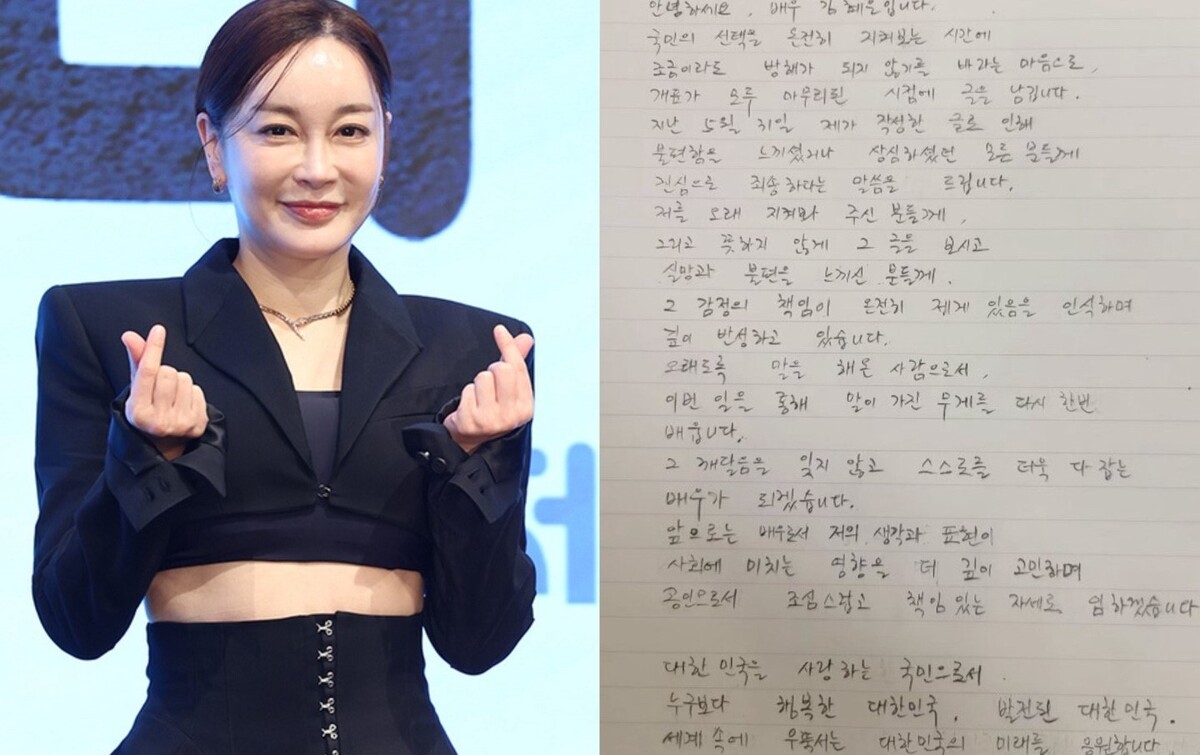 안녕하세요, 배우 김혜은입니다.
국민의 선택을 온전히 지켜보는 시간에
조금이라도 방해가 되지 않기를 바라는 마음으로,
개표가 모두 마무리된 시점에 글을 남깁니다.
지난 5월 31일 제가 작성한 글로 인해
불편함을 느끼셨거나 상심하셨던 모든 분들께
진심으로 죄송하다는 말씀을 드립니다.
저를 오래 지켜봐 주신 분들께,
그리고 뜻하지 않게 그 글을 보시고
실망과 불편을 느끼신 분들께.
그 감정의 책임이 온전히 제게 있음을 인식하며
깊이 반성하고 있습니다.
오래도록 말을 해온 사람으로서,
이번 일을 통해 말이 가진 무게를 다시 한번
배웁니다.
그 깨달음을 잊지 않고 스스로를 더욱 다 잡는
배우가 되겠습니다.
앞으로는 배우로서 저의 생각과 표현이
사회에 미치는 영향을 더 깊이 고민하며
공인으로서 조심스럽고 책임 있는 자세로 임하겠습니다
대한민국을 사랑하는 국민으로서
누구보다 행복한 대한민국, 발전된 대한민국.
세계 속에 우뚝서는 대한민국의 미래를 응원합니다.